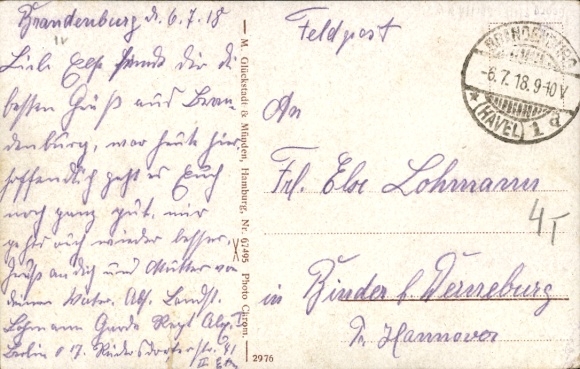 Brandenburg d. 6.7.18
Liebe Else sende dir die
besten Grüß aus Bran
denburg, war heute hier,
hoffendlich geht es Euch
noch ganz gut, mir
geht es auch wieder besser,
Gruß an dich und Mutter von
deinen Vater. Landst.
Lohmann Garde Regt Alex.
Berlin O 17. Rüdersdorferstr. 41
II Etg
M. Glückstadt & Münden, Hamburg, Nr. 67495 Photo Chrom.
2976
Feldpost
BRANDENBURG
-6.7.18.9-10V.
* (HAVEL) 1 d
An
Frl. Else Lohmann
in Binder b Derneburg
Pr. Hannover